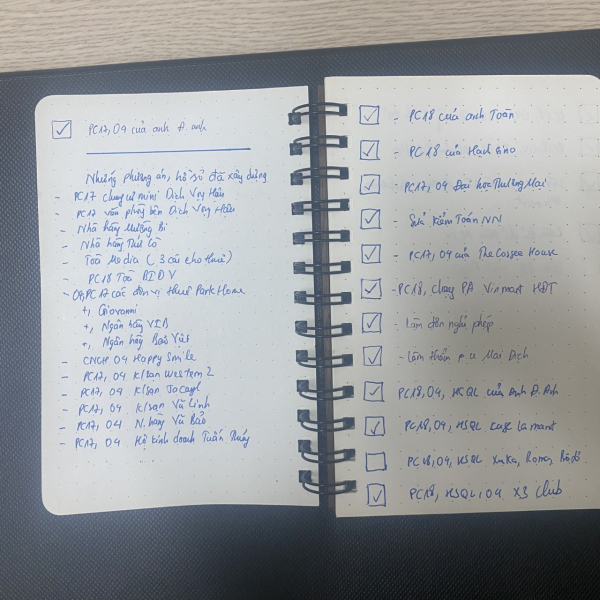 PC17, 04 của anh Đ. anh
Những phương án, hồ sơ đã xây dựng
- PC17 chung cư mini Dịch Vọng Hậu
- PC17 văn phòng bên Dịch Vọng Hậu
- Nhà hàng Mường Bi
- Nhà hàng
- Toà Media (3 cái cho thuê)
PC18 Toà BIDV
- 04, PC17 các đơn vị thuê Park Home
+, Giovanni
+, Ngân hàng VIB
+, Ngân hàng Bảo Việt
- CNCH 04 Happy Smile
- PC17, 04 K/sạn Western 2
- PC17, 04 K/sạn
- PC17, 04 K/sạn Vũ Linh
- PC17, 04 N.hàng Vũ Bảo
- PC17, 04 Hộ kinh doanh Tuấn
- PC18 của anh Toàn
- PC18 của
- PC17, 04 Đại học Thương Mại
- Sửa Kiểm Toán NN
- PC17, 04 của The Coffee House
- PC18, chung PA Vinmart HĐT
- Làm đơn nghỉ phép
- Làm thẩm p.u Mai Dịch
- PC18, 04, HSQL của Anh Đ. Anh
- PC18, 04, HSQL Lamant
PC18, 04, HSQL Xuka, Roma, Bồ đề
PC18, HSQL, 04 X3 Club